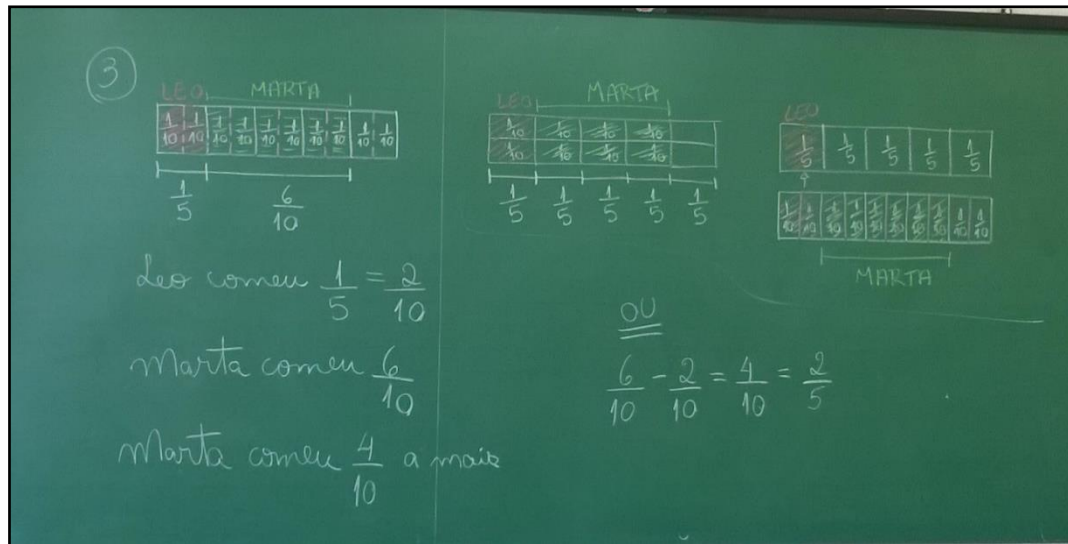 3
LEO MARTA
1/10 1/10 1/10 1/10 1/10 1/10 1/10 1/10 1/10 1/10
1/5 6/10
Leo comeu 1/5 = 2/10
Marta comeu 6/10
Marta comeu 4/10 a mais
LEO MARTA
1/10 1/10 1/10 1/10
1/10 1/10 1/10 1/10
1/5 1/5 1/5 1/5 1/5
LEO
1/5 1/5 1/5 1/5 1/5
1/10 1/10 1/10 1/10 1/10 1/10 1/10 1/10 1/10 1/10
MARTA
OU
6/10 - 2/10 = 4/10 = 2/5